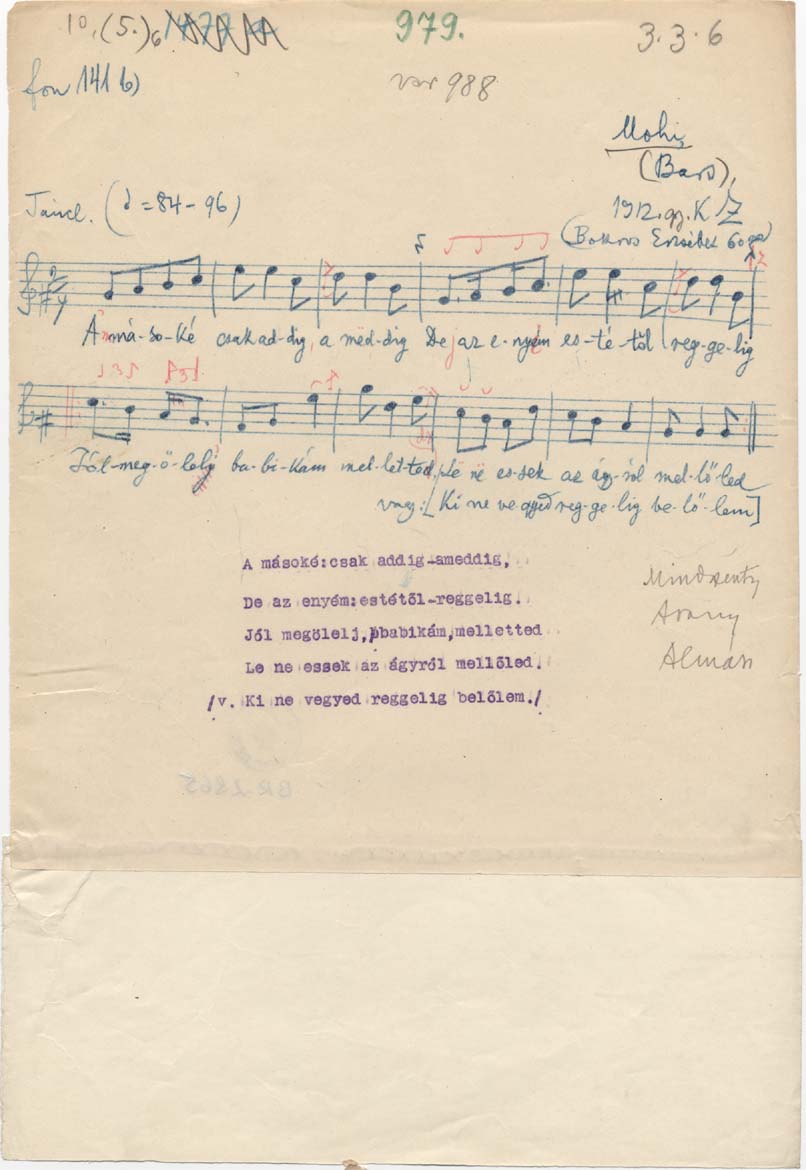 10. (5.)6
979.
3.3.6
fon 141 b)
var 988
Mohi,
(Bars),
1912. gy. K Z
Táncl. ( = 84 - 96)
(Bokros Erzsébet 60
A má-so-ké csak ad-dig, a med-dig De az e-nyém es-té-től reg-ge-lig
Jól meg-ö-lelj ba-bi-kám mel-let-ted, Le ne es-sek az ágy-ról mel-lő-led
vagy: [Ki ne ve-gyed reg-ge-lig be-lő-lem]
A másoké:csak addig-ameddig,
De az enyém:estétől-reggelig.
Jól megölelj, babikám,melletted
Le ne essek az ágyról mellőled.
/v. Ki ne vegyed reggelig belőlem./
Mindszenty
Arany
Almás
BR-2865